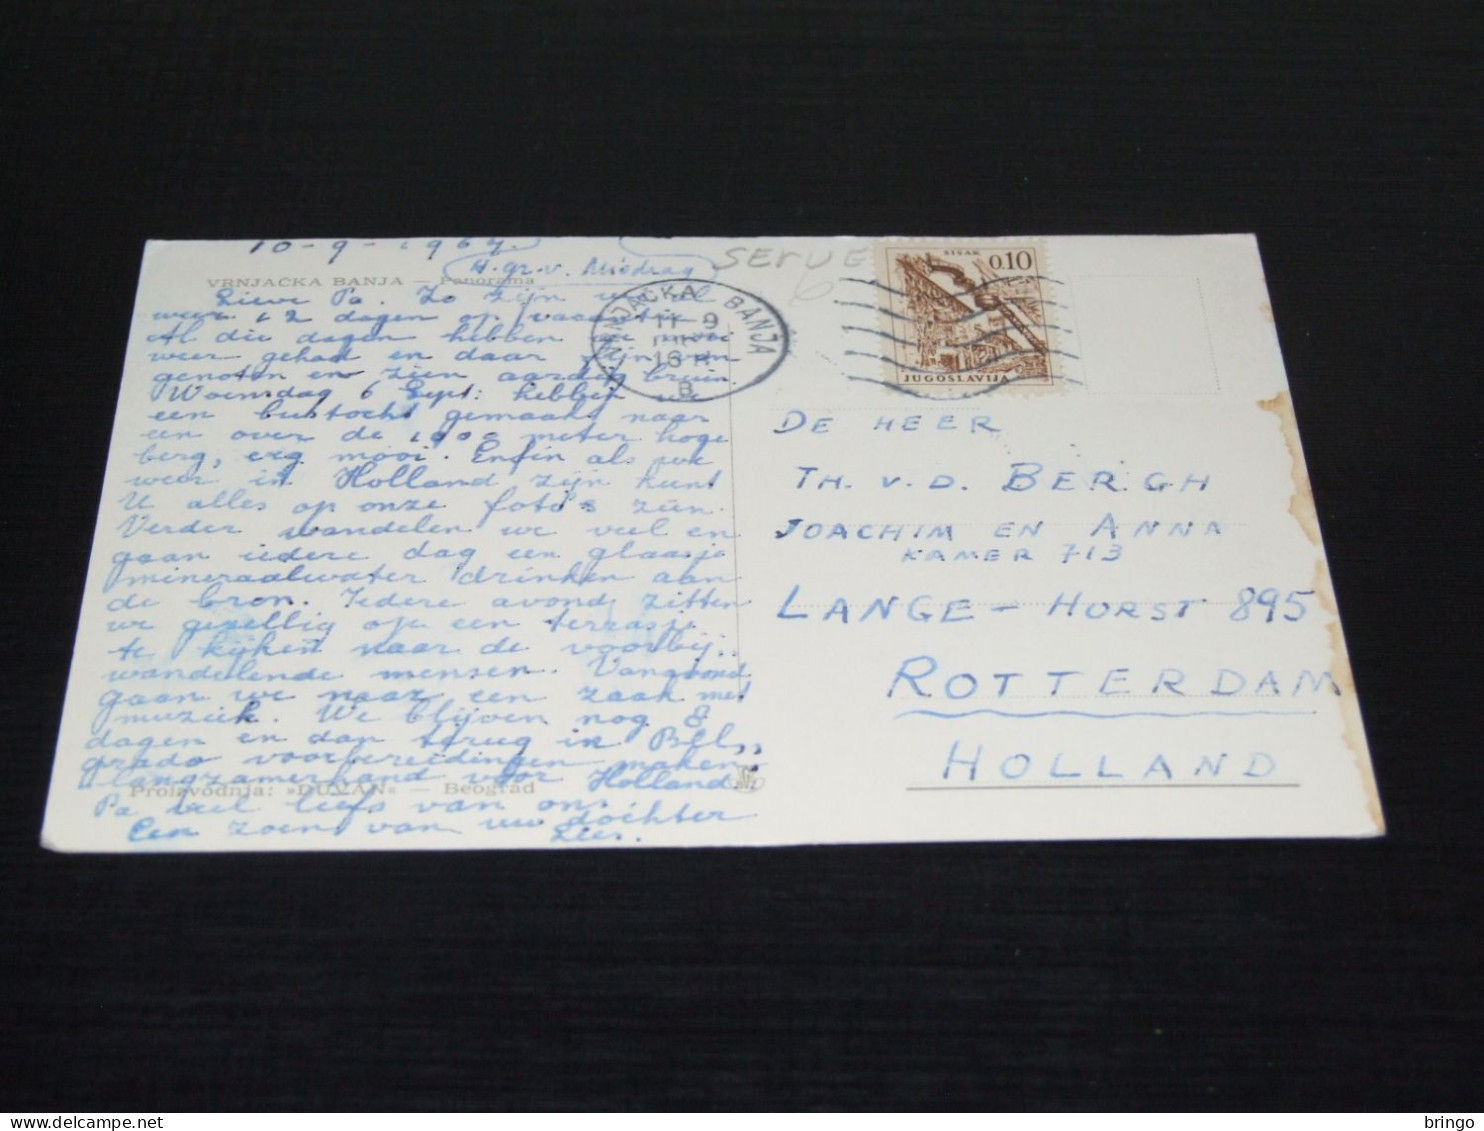 10-9-1967.
H. gr. v. Miodrag
VRNJAČKA BANJA — Panorama
Lieve Pa. Zo zijn we al
weer 12 dagen op vacantie
Al die dagen hebben we mooi
weer gehad en daar zijn van
genoten en zien aardig bruin.
Woensdag 6 Sept: hebben we
een bustocht gemaakt naar
een over de 1900 meter hoge
berg, erg mooi. Enfin als we
weer in Holland zijn kunt
U alles op onze foto's zien.
Verder wandelen we veel en
gaan iedere dag een glaasje
mineraalwater drinken aan
de bron. Iedere avond zitten
we gezellig op een terrasje
te kijken naar de voorbij..
wandelende mensen. Vanavond
gaan we naar een zaak met
muziek. We blijven nog 8
dagen en dan terug in Bel,,
grado voorbereidingen maken
langzamerhand voor Holland
Proizvodnja: »DUVAN« — Beograd
Pa veel liefs van ons
Een zoen van uw dochter
Lies.
SERVE
6
VRNJAČKA BANJA
11-9
16 H
B
SISAK
0.10
JUGOSLAVIJA
DE HEER
TH. V. D. BERGH
JOACHIM EN ANNA
KAMER 713
LANGE - HORST 895
ROTTERDAM
HOLLAND
bringo